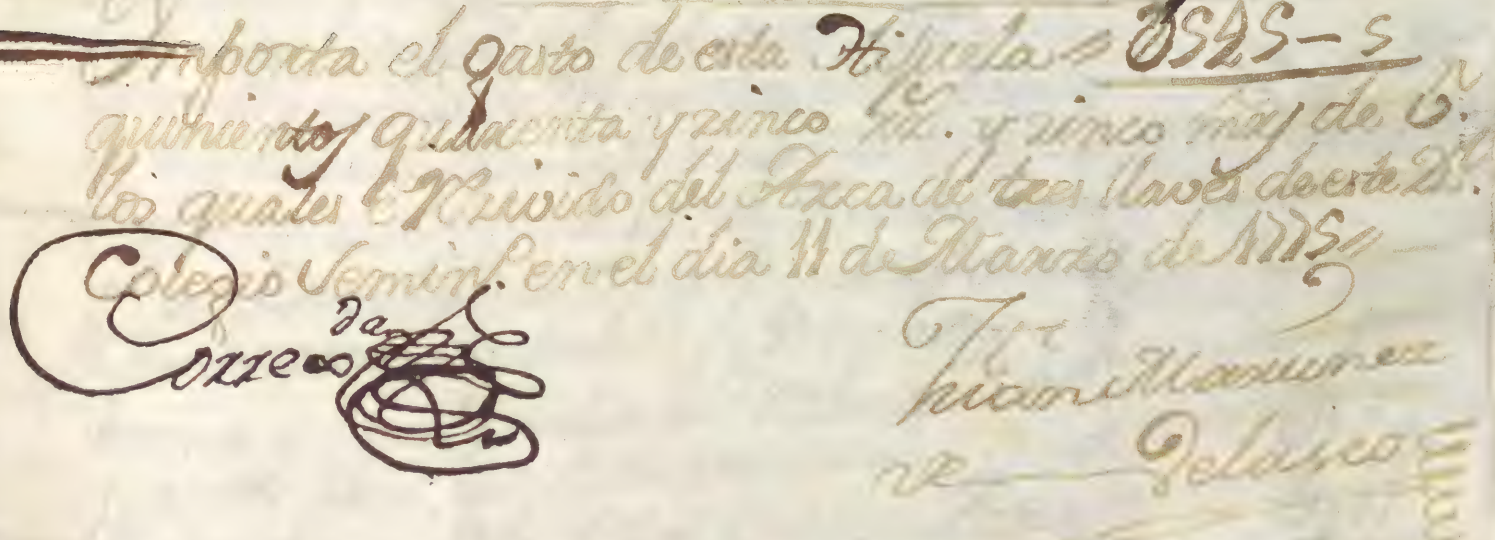 Importa el gasto de esta Hijuela = U545 - 5
quinientos quarenta y zinco Rs. y zinco mrs de Vn.
los quales è Rezivido del Arca de tres llaves de este Rl.
Colegio Semin.º en el dia 11 de Marzo de 1775
Correas da
Martinez
de Velasco